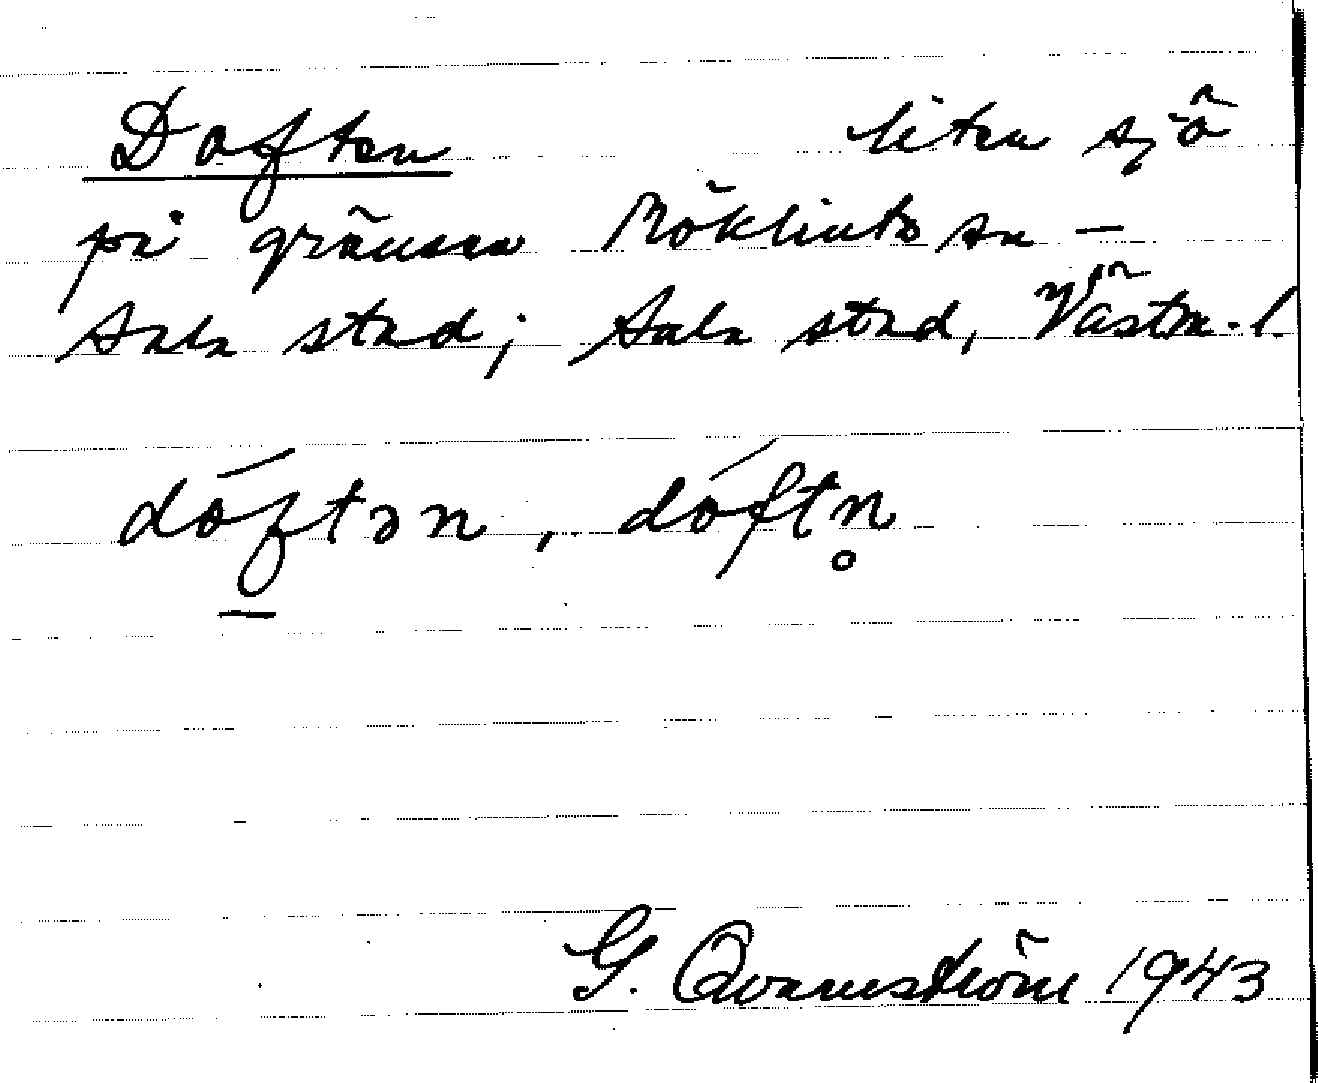 Doften liten sjö
på gränsen Möklinta sn –
Sala stad; Sala stad, Västm. l.
dóftən, dóftn̥
G. Qvarnström 1943